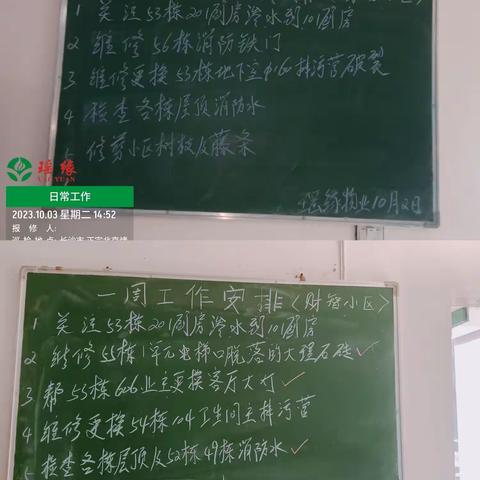 1 关注53栋201厨房渗水到101厨房
2 维修56栋消防铁门
3 维修更换53栋地下室φ160排污管破裂
4 检查各栋屋顶消防水
5 修剪小区树枝及藤条
瑶缘物业10月2日
瑶缘
YAO YUAN
日常工作
2023.10.03 星期二 14:52
报 修 人:
一周工作安排(财智小区)
1 关注53栋201厨房渗水到101厨房
2 维修55栋1单元电梯口脱落的大理石砖✓
3 帮53栋606业主更换客厅大灯✓
4 维修更换54栋104卫生间主排污管
5 检查各栋屋顶及52栋49栋消防水✓